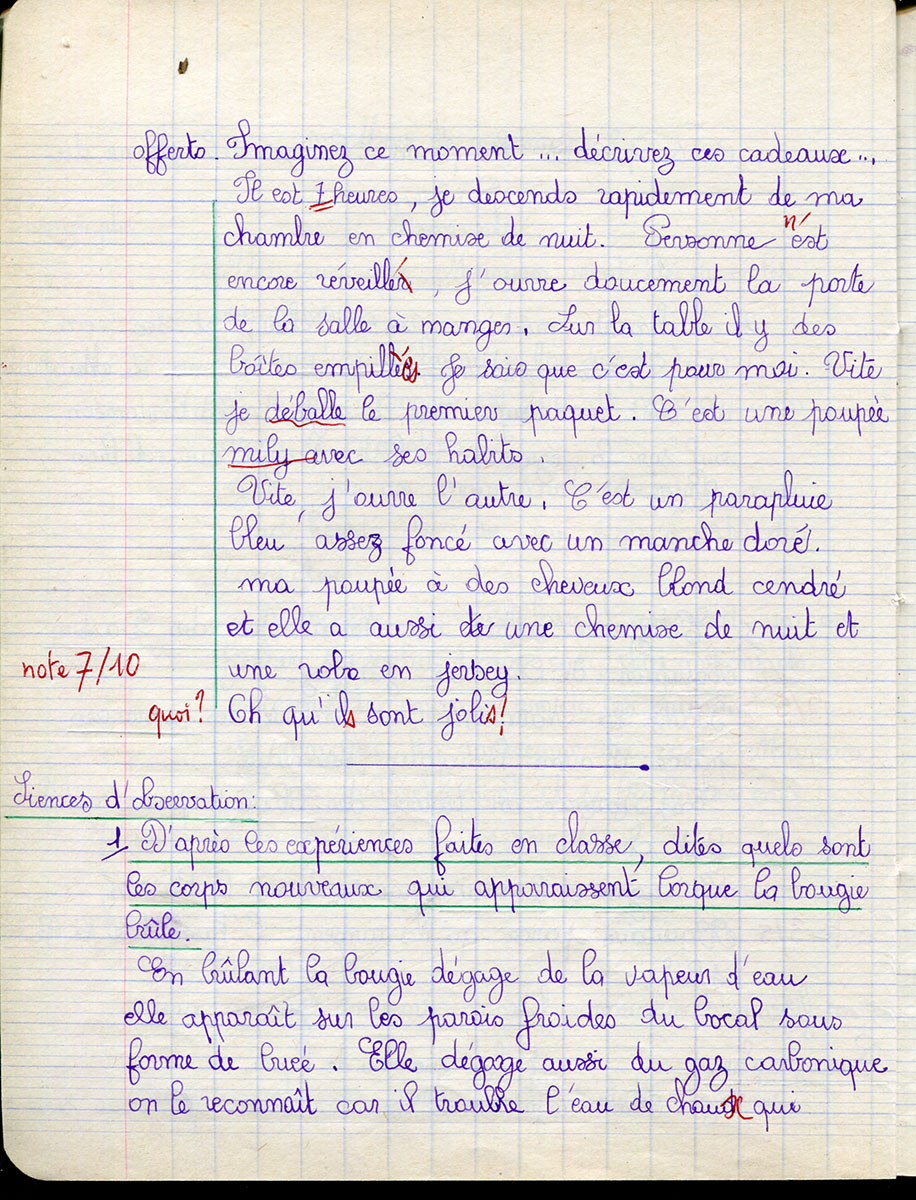 offerts. Imaginez ce moment... décrivez ces cadeaux...
Il est 7 heures, je descends rapidement de ma
chambre en chemise de nuit. Personne n'est
encore réveillé, j'ouvre doucement la porte
de la salle à manges. Sur la table il y des
boîtes empillées Je sais que c'est pour moi. Vite
je déballe le premier paquet. C'est une poupée
mily avec ses habits.
Vite, j'ouvre l'autre. C'est un parapluie
bleu assez foncé avec un manche doré.
ma poupée à des cheveux blond cendré
et elle a aussi de une chemise de nuit et
note 7/10 une robe en jersey.
quoi? Oh qu'ils sont jolis!
Siences d'observation:
1 D'après les expériences faites en classe, dites quels sont
les corps nouveaux qui apparaissent lorque la bougie
brûle.
En brûlant la bougie dégage de la vapeur d'eau
elle apparaît sur les parois froides du bocal sous
forme de bueé. Elle dégage aussi du gaz carbonique
on le reconnaît car il trouble l'eau de chaux qui